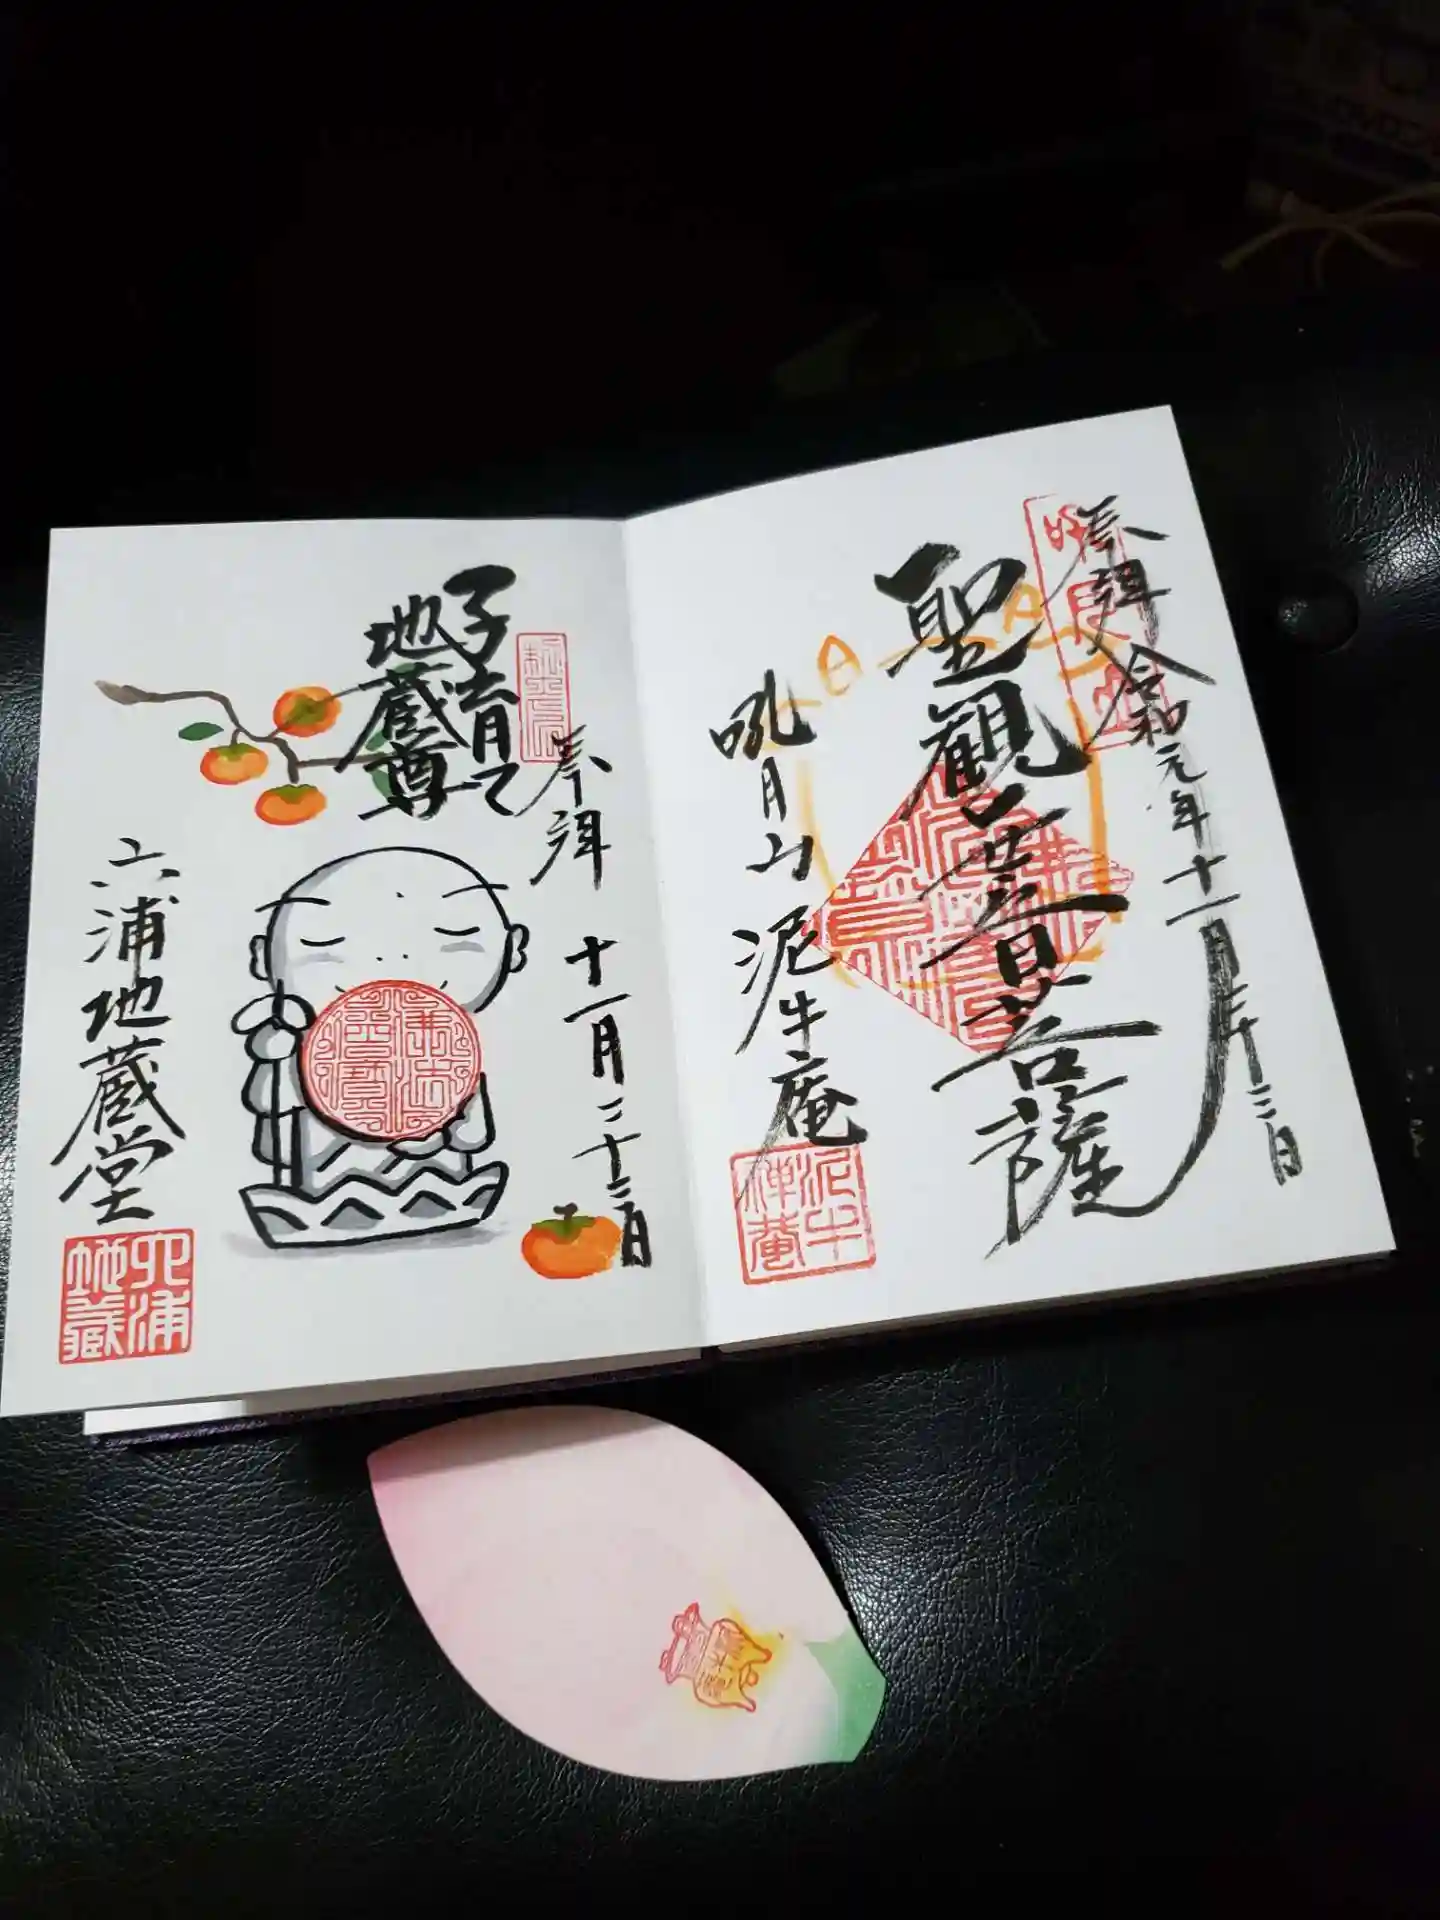 奉拝 令和元年十一月二十三日
聖観世音菩薩
吼月山 泥牛庵
泥牛禅菴
奉拝 十一月二十三日
子育て
地蔵尊
六浦地蔵堂
六浦地蔵